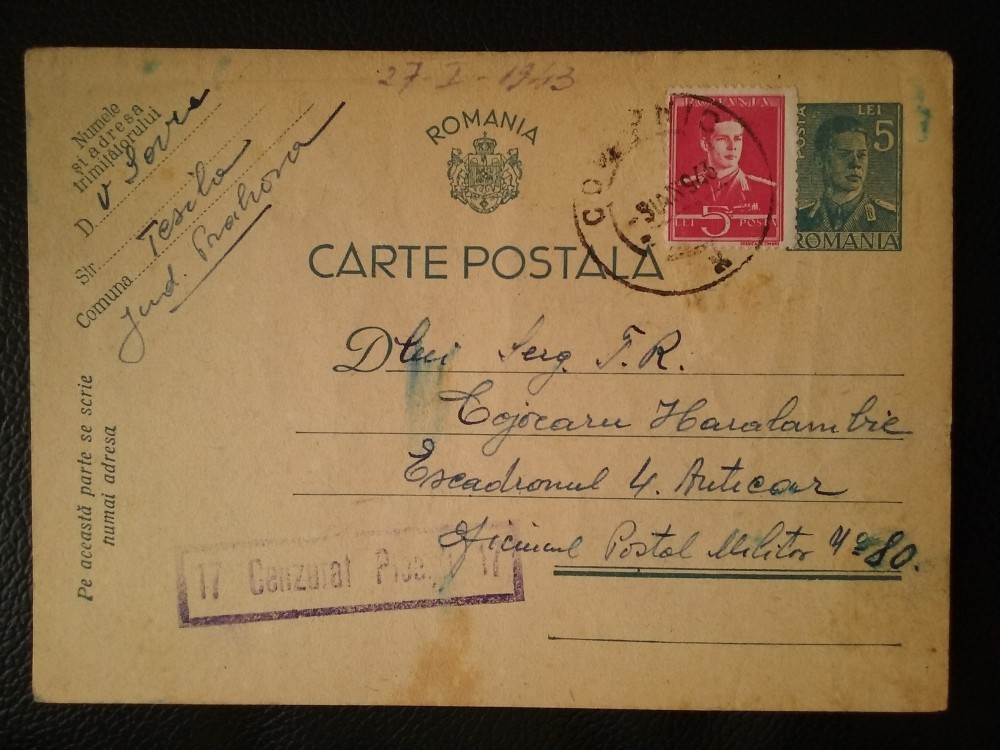 27-I-1943
Numele
și adresa
trimițătorului
D. V Savu
Str. Tesila
Comuna
Jud. Prahova
ROMANIA
CARTE POSTALA
ROMANIA
LEI 5 POSTA
5 IAN 943
POSTA LEI 5
ROMANIA
Dlui Serg. T.R.
Cojocaru Haralambie
Escadronul 4. Anticar
Oficiul Postal Militar No 80.
Pe această parte se scrie
numai adresa
17 Cenzurat 17